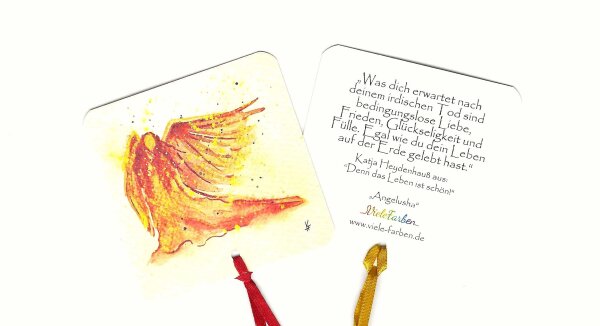 „Was dich erwartet nach
deinem irdischen Tod sind
bedingungslose Liebe,
Frieden, Glückseligkeit und
Fülle. Egal wie du dein Leben
auf der Erde gelebt hast."
Katja Heydenhauß aus:
"Denn das Leben ist schön!"
„Angelusha"
VieleFarben
www.viele-farben.de